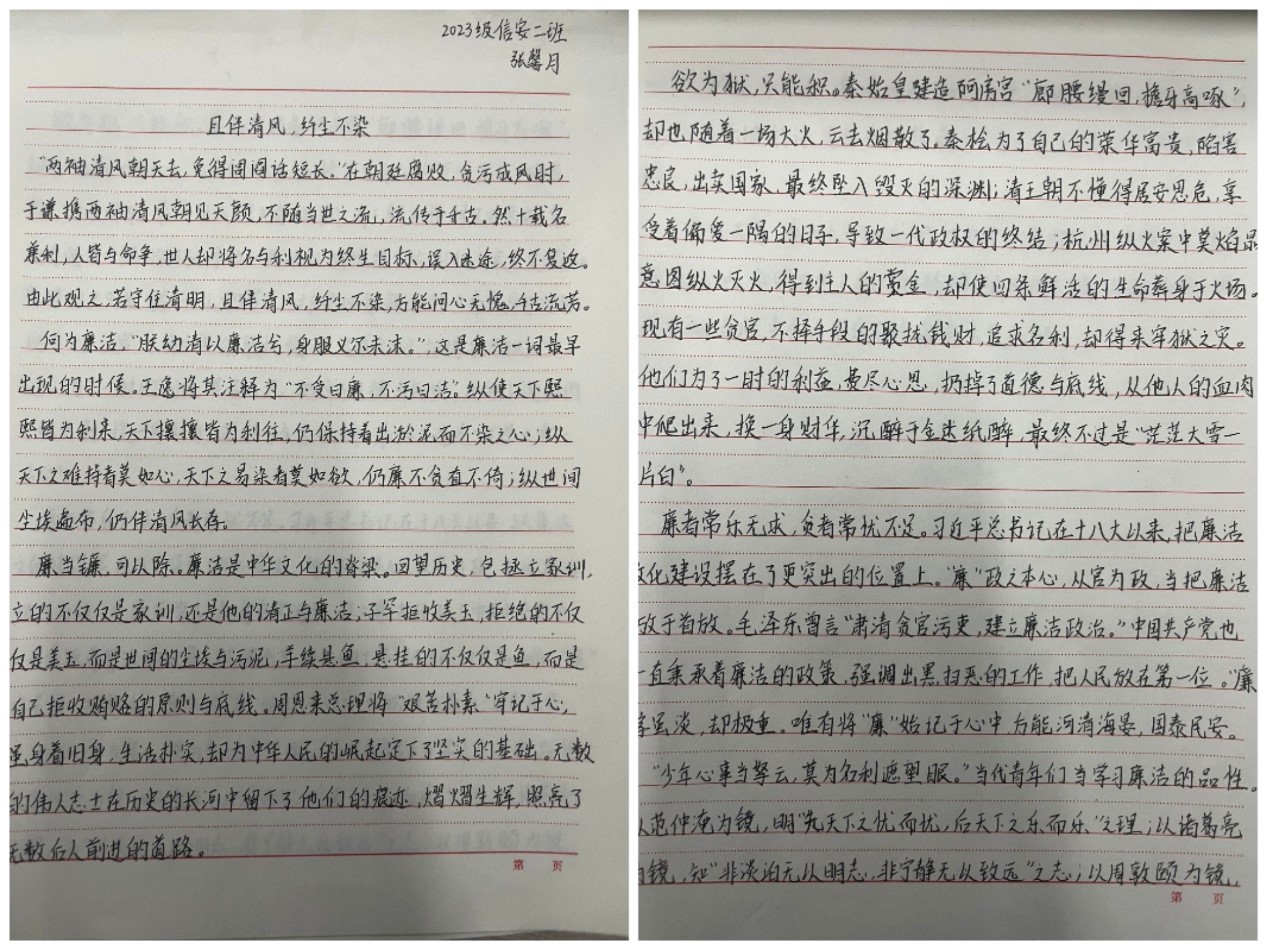 2023级信安二班
张馨月
且伴清风,纤尘不染
"两袖清风朝天去,免得闾阎话短长。"在朝廷腐败,贪污成风时,
于谦携两袖清风朝见天颜,不随当世之流,流传于千古。然十载名
兼利,人皆与命争,世人却将名与利视为终生目标,误入迷途,终不复返。
由此观之,若守住清明,且伴清风,纤尘不染,方能问心无愧,千古流芳。
何为廉洁,"朕幼清以廉洁兮,身服义尔未沫。",这是廉洁一词最早
出现的时候。王逸将其注释为"不受曰廉,不污曰洁"。纵使天下熙
熙皆为利来,天下攘攘皆为利往,仍保持着出淤泥而不染之心;纵
天下之难持者莫如心,天下之易染者莫如欲,仍廉不贪直不倚;纵世间
尘埃遍布,仍伴清风长存。
廉当镰,可以除。廉洁是中华文化的脊梁。回望历史,包拯立家训,
立的不仅仅是家训,还是他的清正与廉洁;子罕拒收美玉,拒绝的不仅
仅是美玉,而是世间的尘埃与污泥,羊续悬鱼,悬挂的不仅仅是鱼,而是
自己拒收贿赂的原则与底线。周恩来总理将"艰苦朴素"牢记于心,
虽身着旧身,生活朴实,却为中华人民的崛起定下了坚实的基础。无数
的伟人志士在历史的长河中留下了他们的痕迹,熠熠生辉,照亮了
无数后人前进的道路。
第 页
欲为狱,只能积。秦始皇建造阿房宫"廊腰缦回,檐牙高啄",
却也随着一场大火,云去烟散了。秦桧为了自己的荣华富贵,陷害
忠良,出卖国家,最终坠入毁灭的深渊;清王朝不懂得居安思危,享
受着偏爱一隅的日子,导致一代政权的终结;杭州纵火案中莫焰晶
意图纵火灭火,得到主人的赏金,却使四条鲜活的生命葬身于火场。
现有一些贪官,不择手段的聚拢钱财,追求名利,却得来牢狱之灾。
他们为了一时的利益,费尽心思,扔掉了道德与底线,从他人的血肉
中爬出来,换一身财华,沉醉于金迷纸醉,最终不过是"茫茫大雪一
片白"。
廉者常乐无求,贪者常忧不足。习近平总书记在十八大以来,把廉洁
文化建设摆在了更突出的位置上。"廉"政之本心,从官为政,当把廉洁
放于首放。毛泽东曾言"肃清贪官污吏,建立廉洁政治。"中国共产党也
一直秉承着廉洁的政策,强调出黑扫恶的工作,把人民放在第一位。"廉
字虽淡,却极重。唯有将"廉"始记于心中,方能河清海晏,国泰民安。
"少年心事当拏云,莫为名利遮望眼。"当代青年们当学习廉洁的品性。
以范仲淹为镜,明"先天下之忧而忧,后天下之乐而乐"之理;以诸葛亮
为镜,知"非淡泊无以明志,非宁静无以致远"之志;以周敦颐为镜,
第 页